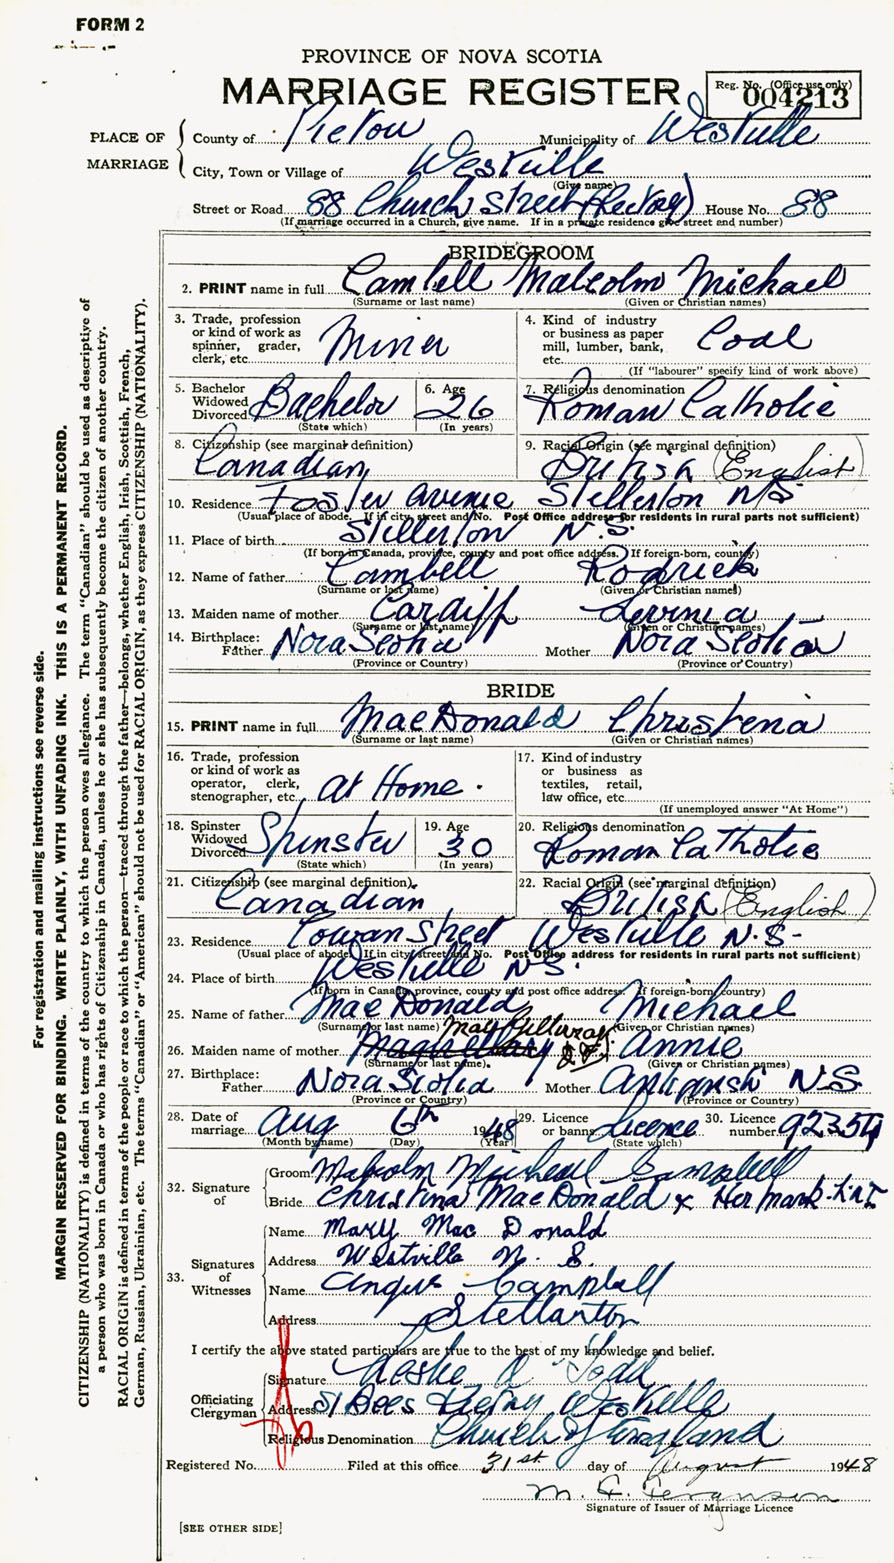 FORM 2
PROVINCE OF NOVA SCOTIA
MARRIAGE REGISTER
Reg. No. (Office use only)
004213
PLACE OF MARRIAGE
County of Pictou Municipality of Westville
City, Town or Village of Westville
(Give name)
Street or Road 88 Church Street (Rectory) House No. 88
(If marriage occurred in a Church, give name. If in a private residence give street and number)
BRIDEGROOM
2. PRINT name in full Cambell Malcolm Michael
(Surname or last name) (Given or Christian names)
3. Trade, profession or kind of work as spinner, grader, clerk, etc. Miner
4. Kind of industry or business as paper mill, lumber, bank, etc. Coal
(If "labourer" specify kind of work above)
5. Bachelor Widowed Divorced Bachelor
(State which)
6. Age 26
(In years)
7. Religious denomination Roman Catholic
8. Citizenship (see marginal definition) Canadian
9. Racial Origin (see marginal definition) British (English)
10. Residence Foster Avenue Stellerton N/S
(Usual place of abode. If in city, street and No. Post Office address for residents in rural parts not sufficient)
11. Place of birth Stellerton N.S.
(If born in Canada, province, county and post office address. If foreign-born, country)
12. Name of father Cambell Rodrick
(Surname or last name) (Given or Christian names)
13. Maiden name of mother Cardiff Levinia
(Surname or last name) (Given or Christian names)
14. Birthplace: Father Nova Scotia Mother Nova Scotia
(Province or Country) (Province or Country)
BRIDE
15. PRINT name in full MacDonald Christena
(Surname or last name) (Given or Christian names)
16. Trade, profession or kind of work as operator, clerk, stenographer, etc. at Home.
17. Kind of industry or business as textiles, retail, law office, etc.
(If unemployed answer "At Home")
18. Spinster Widowed Divorced Spinster
(State which)
19. Age 30
(In years)
20. Religious denomination Roman Catholic
21. Citizenship (see marginal definition) Canadian
22. Racial Origin (see marginal definition) British (English)
23. Residence Cowan Street Westville N.S.
(Usual place of abode. If in city, street and No. Post Office address for residents in rural parts not sufficient)
24. Place of birth Westville N.S.
(If born in Canada, province, county and post office address. If foreign-born, country)
25. Name of father MacDonald Michael
(Surname or last name) (Given or Christian names)
26. Maiden name of mother MacGillivray Annie
(Surname or last name) (Given or Christian names)
27. Birthplace: Father Nova Scotia Mother Antigonish N.S.
(Province or Country) (Province or Country)
28. Date of marriage Aug 6th 1948
(Month by name) (Day) (Year)
29. Licence or banns Licence
(State which)
30. Licence number 92354
32. Signature of
Groom Malcolm Micheal Campbell
Bride Christina MacDonald x Her mark
33. Signatures of Witnesses
Name Mary MacDonald
Address Westville N. S.
Name Angus Campbell
Address Stellarton
I certify the above stated particulars are true to the best of my knowledge and belief.
Officiating Clergyman
Signature Leslie A. Todd
Address St Bees Rectory Westville
Religious Denomination Church of England
Registered No. Filed at this office 31st day of August 1948
M. F. Ferguson
Signature of Issuer of Marriage Licence
[SEE OTHER SIDE]
For registration and mailing instructions see reverse side.
MARGIN RESERVED FOR BINDING. WRITE PLAINLY, WITH UNFADING INK. THIS IS A PERMANENT RECORD.
CITIZENSHIP (NATIONALITY) is defined in terms of the country to which the person owes allegiance. The term "Canadian" should be used as descriptive of
a person who was born in Canada or who has rights of Citizenship in Canada, unless he or she has subsequently become the citizen of another country.
RACIAL ORIGIN is defined in terms of the people or race to which the person—traced through the father—belongs, whether English, Irish, Scottish, French,
German, Russian, Ukrainian, etc. The terms "Canadian" or "American" should not be used for RACIAL ORIGIN, as they express CITIZENSHIP (NATIONALITY).